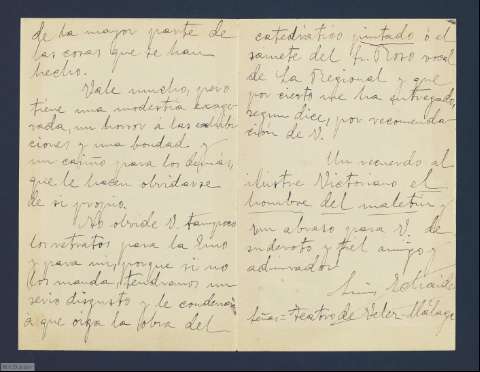 de la mayor parte de
las cosas que se han
hecho.
Vale mucho, pero
tiene una modestia exage-
rada, un horror a las exhibi-
ciones y una bondad y
un cariño para los demas,
que le hacen olvidarse
de si propio.
No olvide V. tampoco
los retratos para la
y para mi, porque si no
los manda, tendremos un
serio disgusto y le condena
á que oiga la obra del
catedratico pintado ó el
sainete del Sr. Roso vocal
de La Regional y que
por cierto me ha entregado,
segun dice, por recomenda-
cion de V.
Un recuerdo al
ilustre Victoriano el
hombre del maletin y
un abrazo para V. de
su devoto y fiel amigo y
admirador
Luis
señas = Teatro de Velez-Málaga